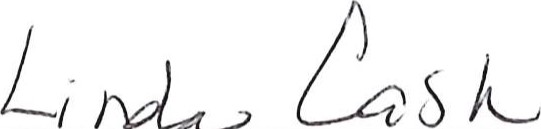 Linda Cash